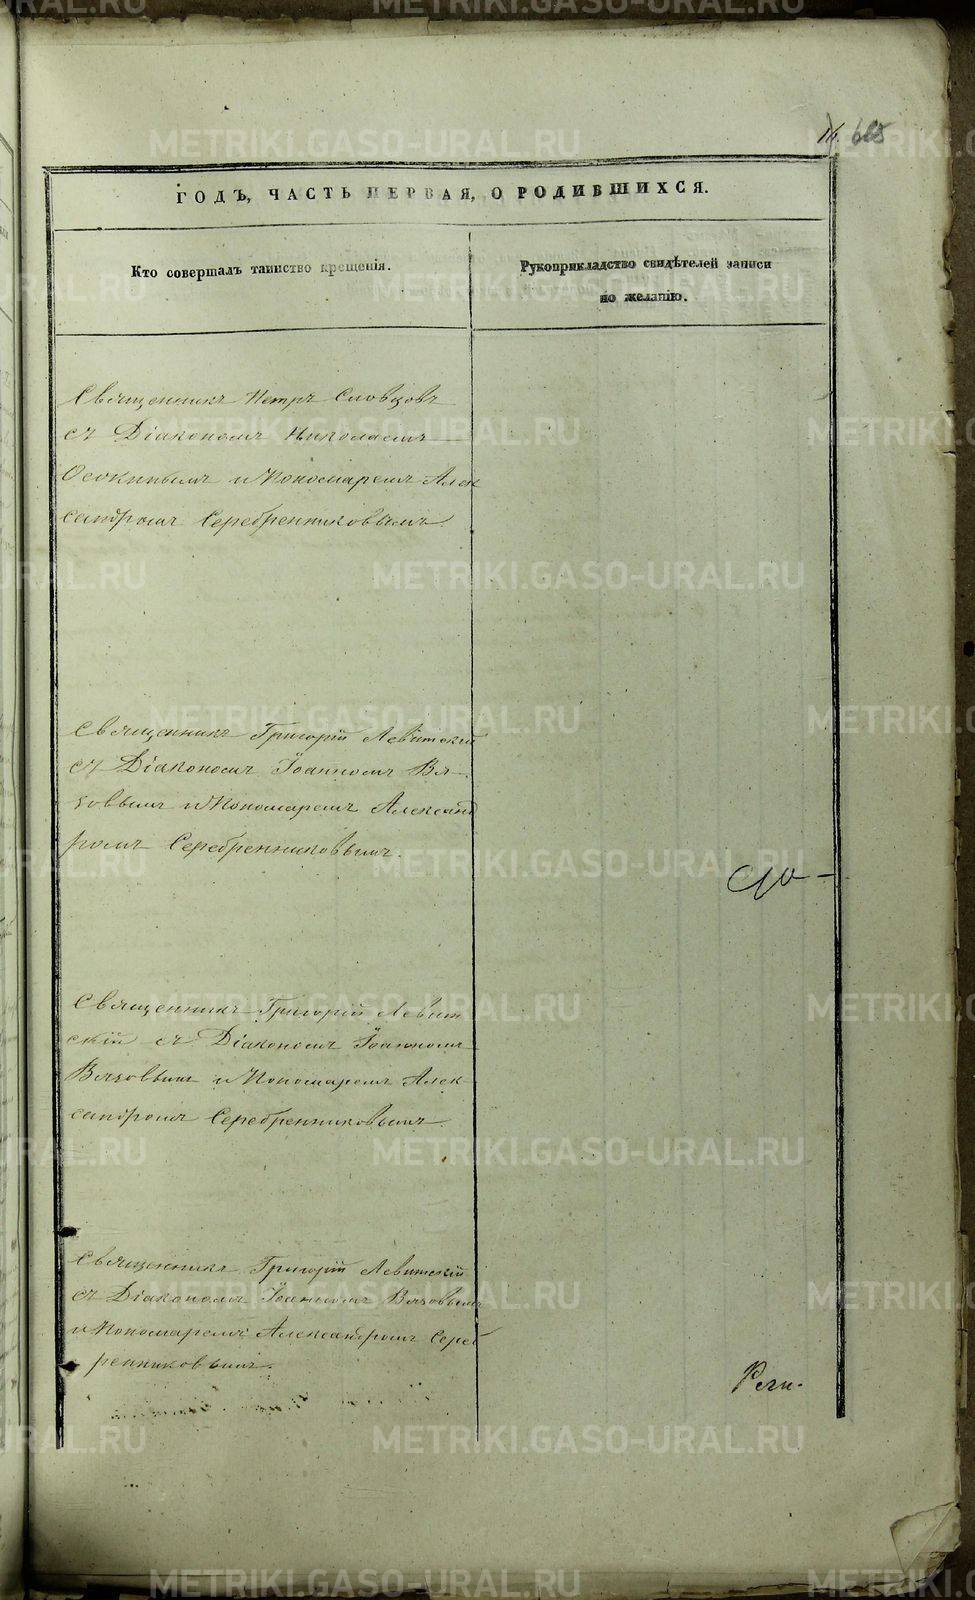 16. 
ГОДЪ, ЧАСТЬ ПЕРВАЯ, О РОДИВШИХСЯ.
Кто совершалъ таинство крещенія.
Рукоприкладство свидѣтелей записи
по желанію.
Священникъ Петръ Словцовъ
съ Діакономъ Николаемъ
Осокинымъ и Пономаремъ Алек
сандромъ Серебренниковымъ
Священникъ Григорій Левитскій
съ Діакономъ Іоанномъ Вя-
зовымъ и Пономаремъ Александ
ромъ Серебренниковымъ.
Священникъ Григорій Левит
скій съ Діакономъ Іоанномъ
Вязовымъ и Пономаремъ Алек-
сандромъ Серебренниковымъ
Священникъ Григорій Левитскій
съ Діакономъ Іоанномъ Вязовымъ
и Пономаремъ Александромъ Сереб
ренниковымъ.
METRIKI.GASO-URAL.RU